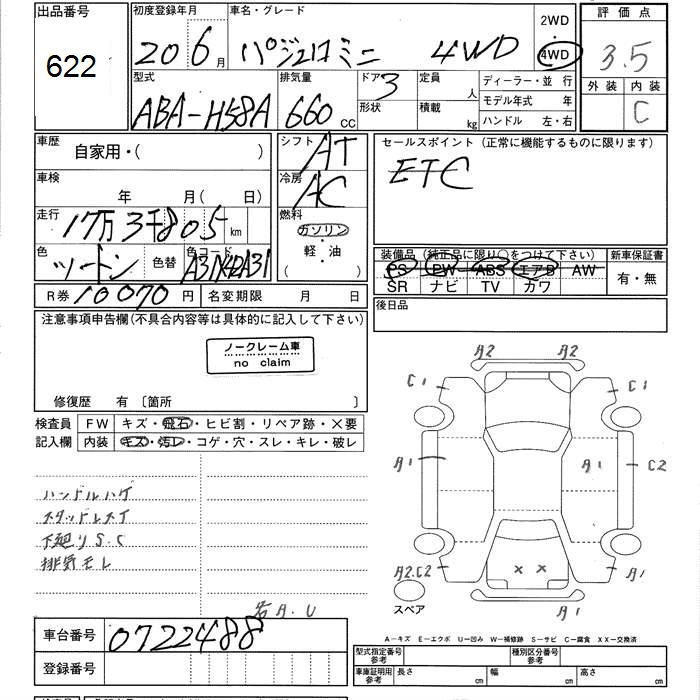 出品番号
622
初度登録年月
20 6月
車名・グレード
パジェロミニ 4WD
2WD
・
4WD
評価点
3.5
外装 内装
C
型式
ABA-H58A
排気量
660 CC
ドア 3
形状
定員 人
積載 kg
ディーラー・並行
モデル年式 年
ハンドル 左・右
車歴
自家用・( )
車検
年 月( 日)
走行
17万3千805 km
色
ツートン
色替
色コード
A31X42A31
シフト
AT
冷房
AC
燃料
ガソリン
・
軽・油
セールスポイント(正常に機能するものに限ります)
ETC
装備品(純正品に限り○をつけて下さい)
PS PW ABS エアB AW
SR ナビ TV カワ
新車保証書
有・無
R券 10070円
名変期限 月 日
後日品
注意事項申告欄(不具合内容等は具体的に記入して下さい)
ノークレーム車
no claim
修復歴 有〔箇所 〕
検査員
記入欄
FW キズ・飛石・ヒビ割・リペア跡・×要
内装 キズ・汚レ・コゲ・穴・スレ・キレ・破レ
ハンドルハゲ
スタッドレスタイ
下廻りS.C
排気モレ
若A.U
A2 A2
C1 C1
A1 A1 C2
A2.C2 × × A1
スペア
A1
A―キズ E―エクボ U―凹み W―補修跡 S―サビ C―腐食 XX―交換済
車台番号
0722488
登録番号
型式指定番号
参考
種別区分番号
参考
車庫証明用
参考
長さ cm
幅 cm
高さ cm